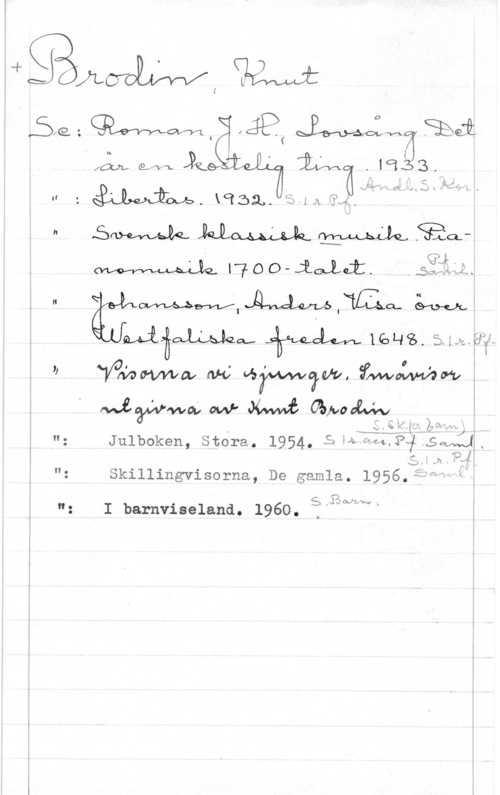 + Brodin, Knut
Se: Roman, J. H., Lovsång. Det
är en kosteligt ting. 1933.
Andl. S. Kör.
" : Libertas. 1932. S. 1 r. Pf.
" Svensk klassisk musik. Pia-
nomusik 1700-talet. Pf. Saml.
" Johansson, Anders, Visa över
Westfaliska freden 1648. S. 1 r. Pf.
" Visorna vi sjunger. Småvisor
utgivna av Knut Brodin
S. Sk. (o. barn)
": Julboken, Stora. 1954. S 1 r. acc. Pf. Saml.
S. 1 r. Pf.
": Skillingvisorna, De gamla. 1956. Saml
": I barnviseland. 1960. S. Barn.